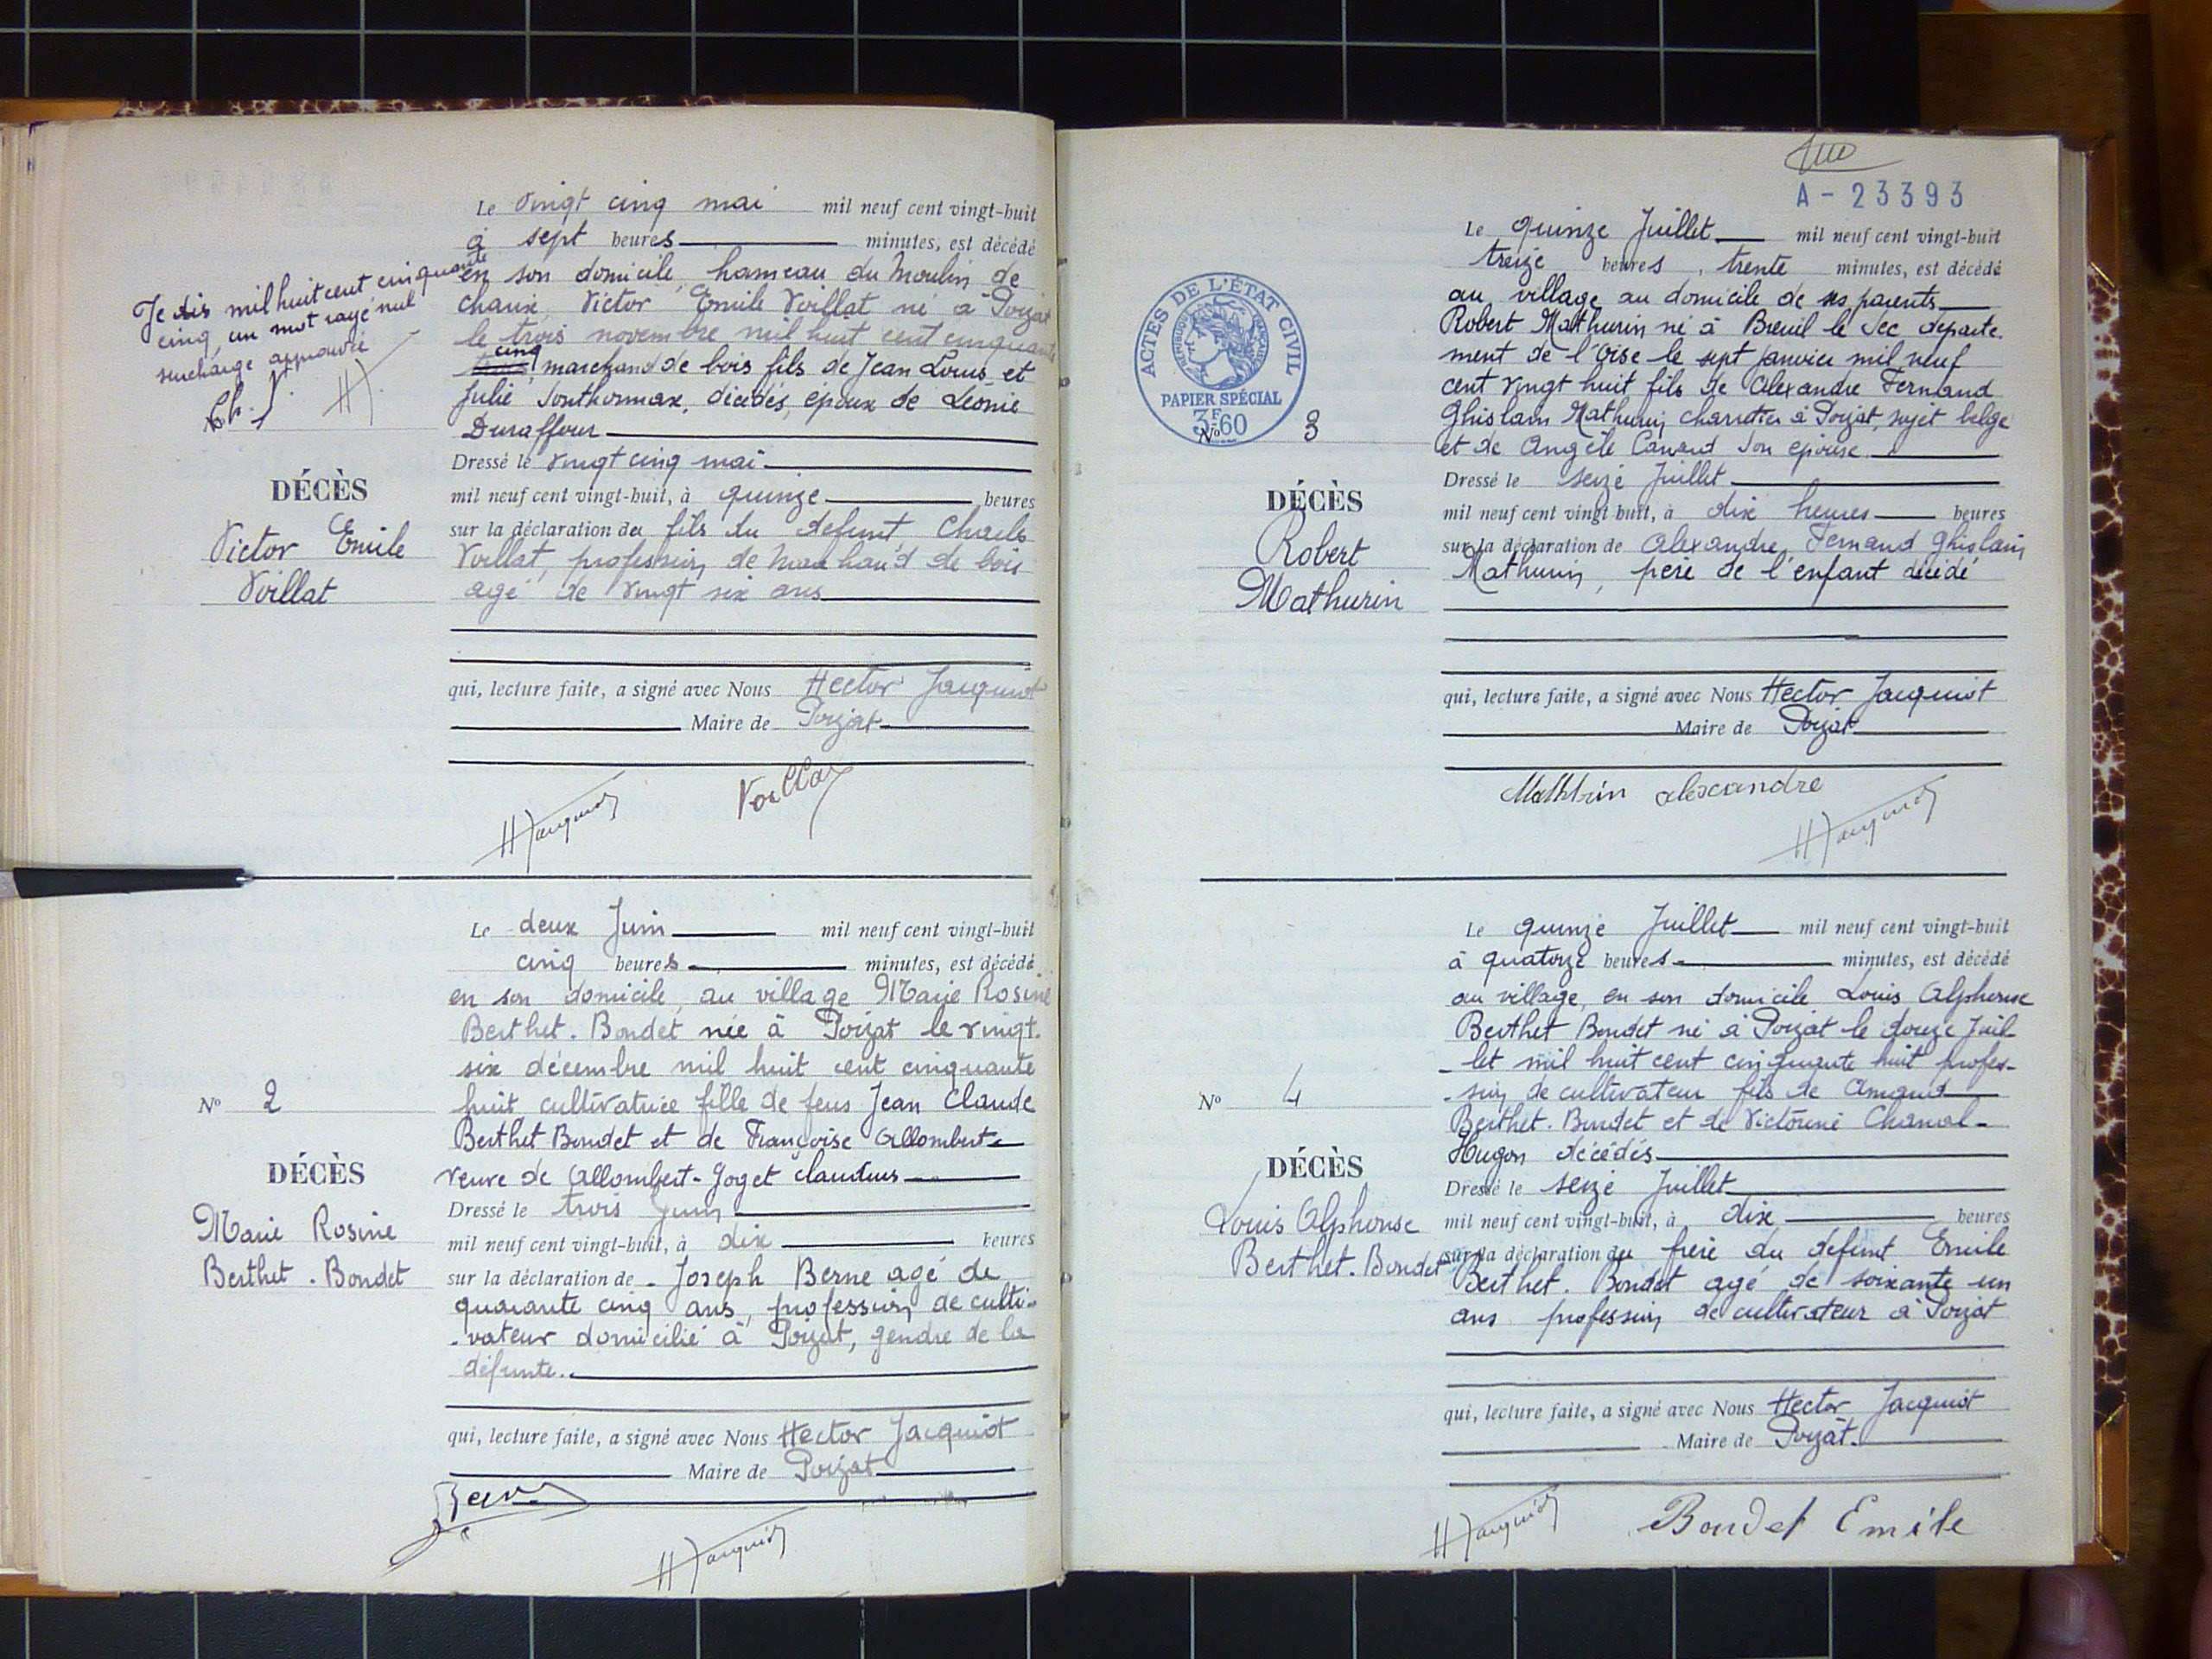 Le vingt cinq mai mil neuf cent vingt-huit
à sept heures minutes, est décédé
en son domicile, hameau du Moulin de
Chaux, Victor Emile Voillat né à Poizat
le trois novembre mil huit cent cinquante
cinq
trois, marchand de bois fils de Jean Louis et
Julie Sonthonnax, décédés, époux de Léonie
Duraffour
Je dis mil huit cent cinquante
cinq, un mot rayé nul
surcharge approuvée
Ch. J. HJ.
DÉCÈS
Victor Emile
Voillat
Dressé le vingt cinq mai
mil neuf cent vingt-huit, à quinze heures
sur la déclaration du fils du défunt, Charles
Voillat, profession de marchand de bois
agé de vingt six ans
qui, lecture faite, a signé avec Nous Hector Jacquiot
Maire de Poizat
HJacquiot Voillat
Le deux Juin mil neuf cent vingt-huit
cinq heures minutes, est décédé
en son domicile, au village Marie Rosine
Berthet-Bondet née à Poizat le vingt-
six décembre mil huit cent cinquante
huit cultivatrice fille de feus Jean Claude
Berthet Bondet et de Françoise Allombert-
veuve de Allombert-Goget Claudius
N° 2
DÉCÈS
Marie Rosine
Berthet-Bondet
Dressé le trois Juin
mil neuf cent vingt-huit, à dix heures
sur la déclaration de Joseph Berne agé de
quarante cinq ans, profession de culti-
-vateur domicilié à Poizat, gendre de la
défunte.
qui, lecture faite, a signé avec Nous Hector Jacquiot
Maire de Poizat
Berne
HJacquiot
A-23393
ACTES DE L'ÉTAT CIVIL
RÉPUBLIQUE FRANÇAISE
PAPIER SPÉCIAL
3F60
Le quinze Juillet mil neuf cent vingt-huit
treize heures, trente minutes, est décédé
au village au domicile de ses parents
Robert Mathurin né à Breuil le Sec départe-
ment de l'Oise le sept Janvier mil neuf
cent vingt huit fils de Alexandre Fernand
Ghislain Mathurin, charretier à Poizat, sujet belge
et de Angèle Canard son épouse
N° 3
DÉCÈS
Robert
Mathurin
Dressé le seize Juillet
mil neuf cent vingt-huit, à dix heures heures
sur la déclaration de Alexandre Fernand Ghislain
Mathurin, père de l'enfant décédé
qui, lecture faite, a signé avec Nous Hector Jacquiot
Maire de Poizat
Mathurin alexandre
HJacquiot
Le quinze Juillet mil neuf cent vingt-huit
à quatorze heures minutes, est décédé
au village, en son domicile Louis Alphonse
Berthet Bondet né à Poizat le douze Juil-
-let mil huit cent cinquante huit profes-
-sion de cultivateur fils de Amand
Berthet-Bondet et de Victorine Chanal-
Hugon décédés
N° 4
DÉCÈS
Louis Alphonse
Berthet-Bondet
Dressé le seize Juillet
mil neuf cent vingt-huit, à dix heures
sur la déclaration du frère du défunt Emile
Berthet-Bondet agé de soixante un
ans profession de cultivateur à Poizat
qui, lecture faite, a signé avec Nous Hector Jacquiot
Maire de Poizat.
HJacquiot Bondet Emile